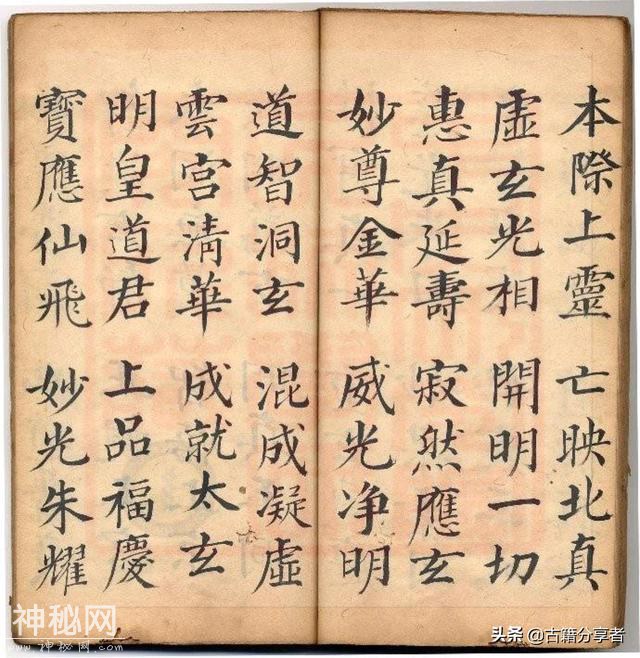 本際上靈 亡映北真
虛玄光相 開明一切
惠真延壽 寂然應玄
妙尊金華 威光净明
道智洞玄 混成凝虛
雲宮清華 成就太玄
明皇道君 上品福慶
寶應仙飛 妙光朱耀
神秘网
www.神秘网.com
头条 @古籍分享者